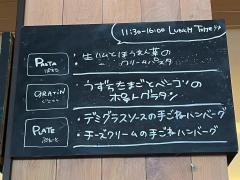 11:30-16:00 LUNCH TIME
PASTA
ぱすた
・生ハムとほうれん草の
クリームパスタ
GRATIN
ぐらたん
・うずらたまごとベーコンの
ポテトグラタン
PLATE
ぷれーと
・デミグラスソースの手ごねハンバーグ
・チーズクリームの手ごねハンバーグ